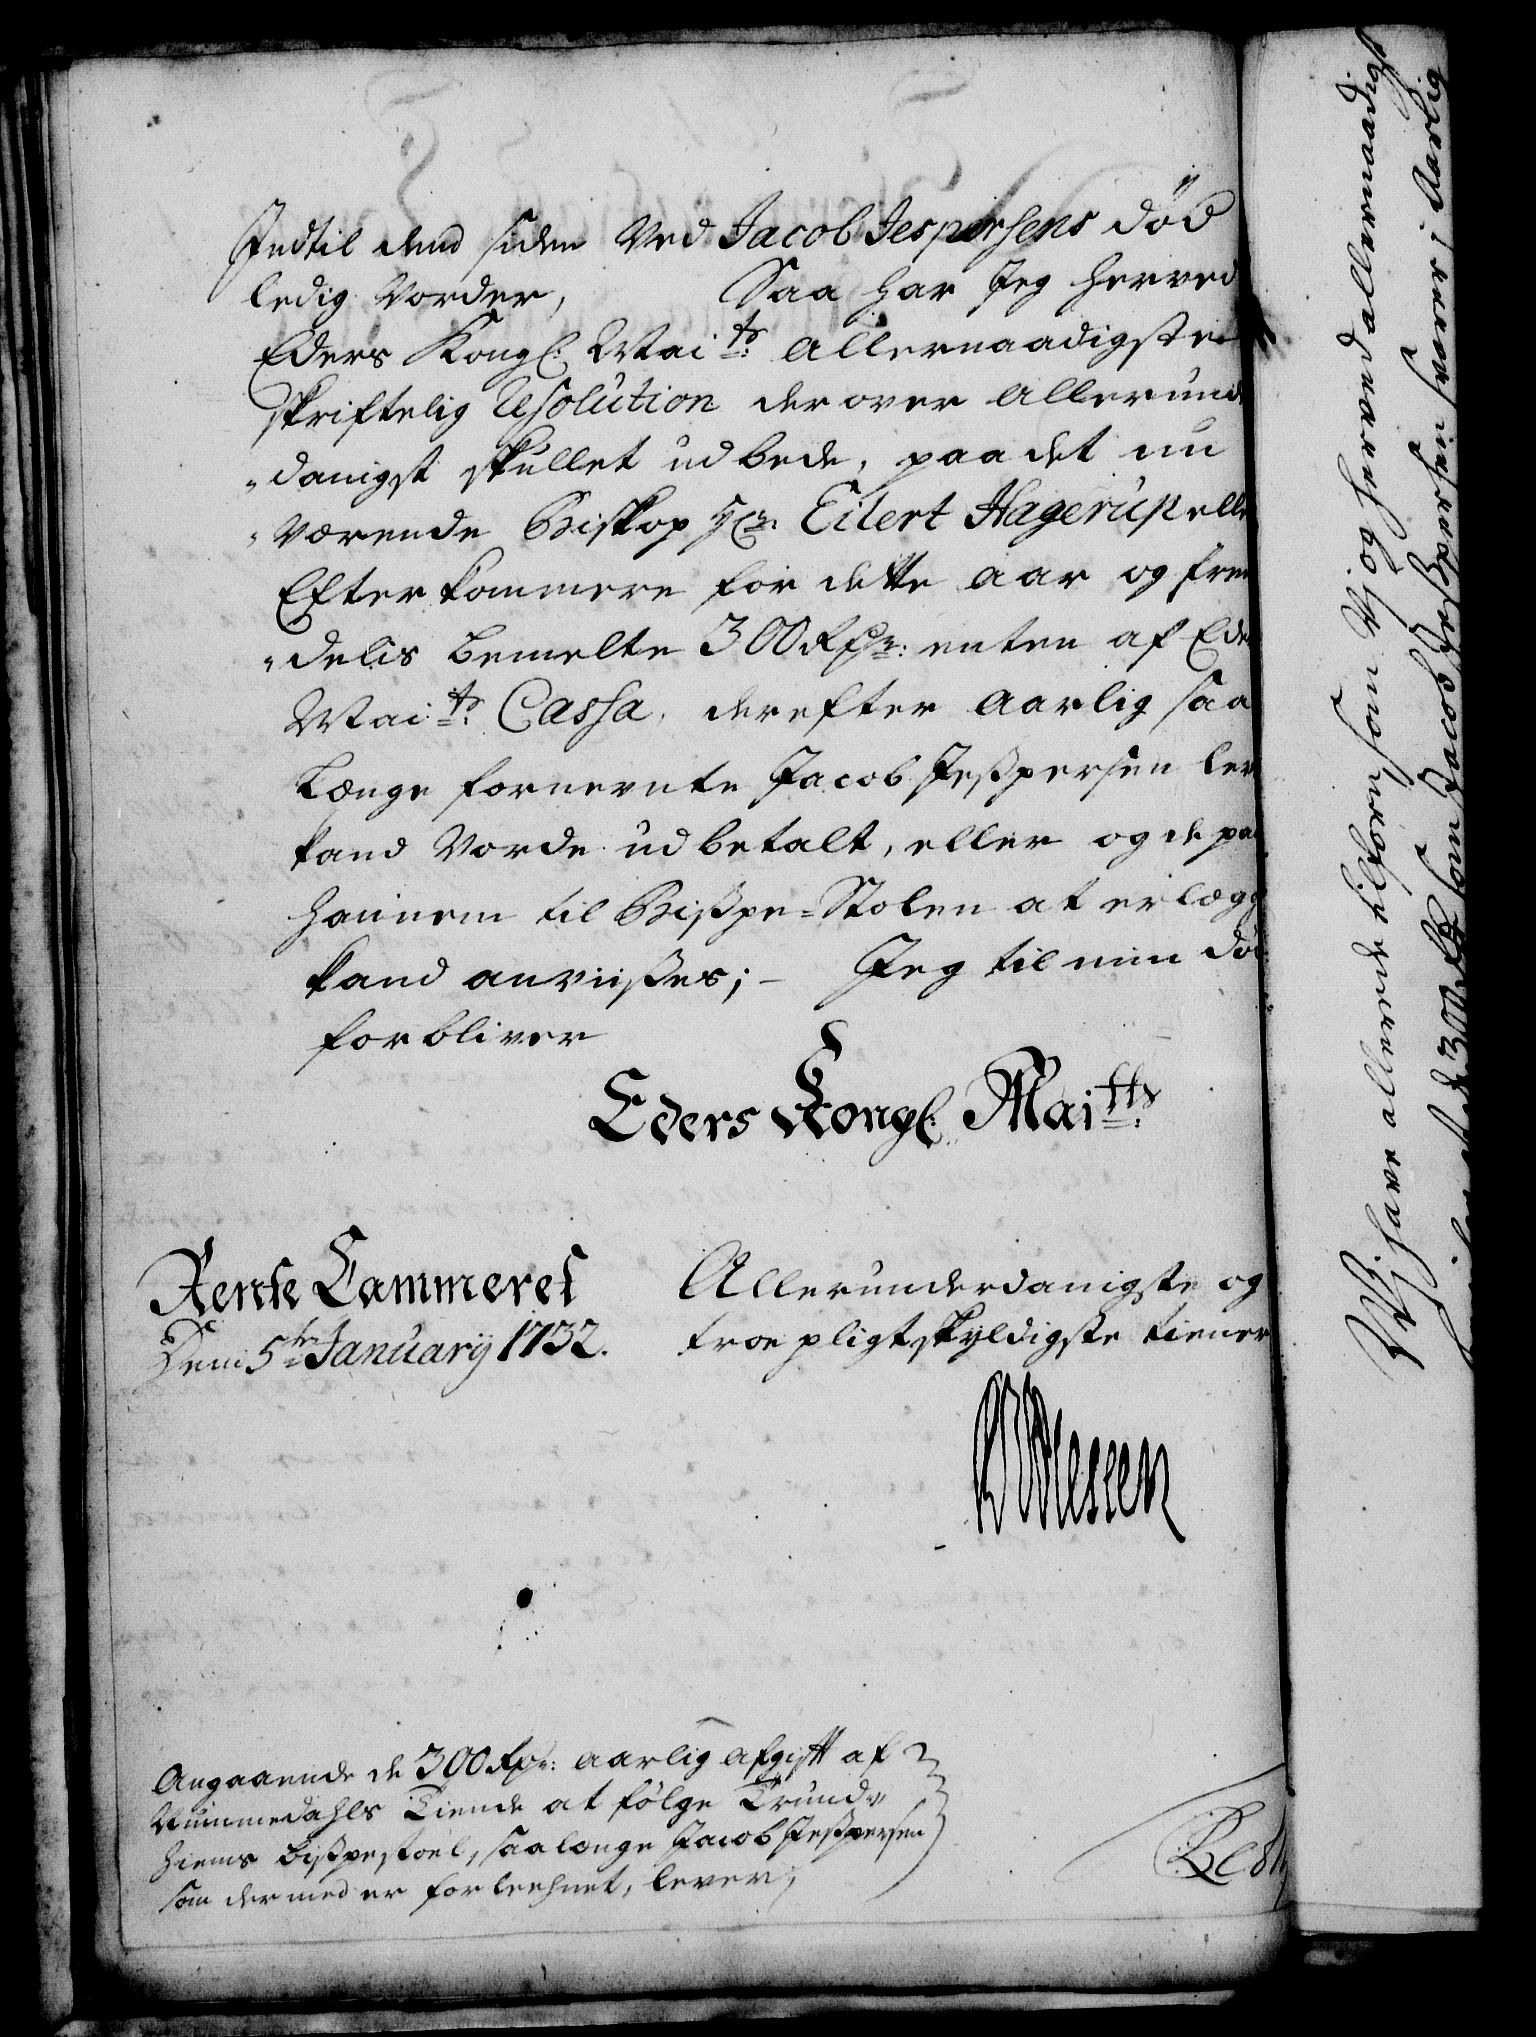 Indtil dend siden ved Jacob Jespersens død
ledig vorder, Saa har Jeg herved
Eders Kongl: Maits: allernaadigste
skriftelig Resolution derover allerund
„danigst skullet udbede, paa det nu
„værende Biskop Hr: Eilert Hagerup elle
Efterkommere for dette aar og frem
„delis bemelte 300 Rdr: enten af Eders
Maits: Cassa, derefter aarlig saa
længe fornevnte Jacob Jespersen lev
kand vorde udbetalt, eller og de paa
hannem til Bispe-Stolen at erlægg
kand anviises; – Jeg til min død
forbliver
Eders Kongl: Maitts:
Rente Cammeret
Den 5te January 1732.
Allerunderdanigste og
troe pligtskyldigste tiener
Angaaende de 300 Rdr: aarlig afgift af
Nummedahls Tiende at følge Trund-
hiems bispestoel, saalænge Jacob Jespersen
som dermed er forleehnet, lever,
Vj have allerede tilforn, som Vj og herved allernaadigst
300 Rd som Jacob Jespersen svarer i Aarlig